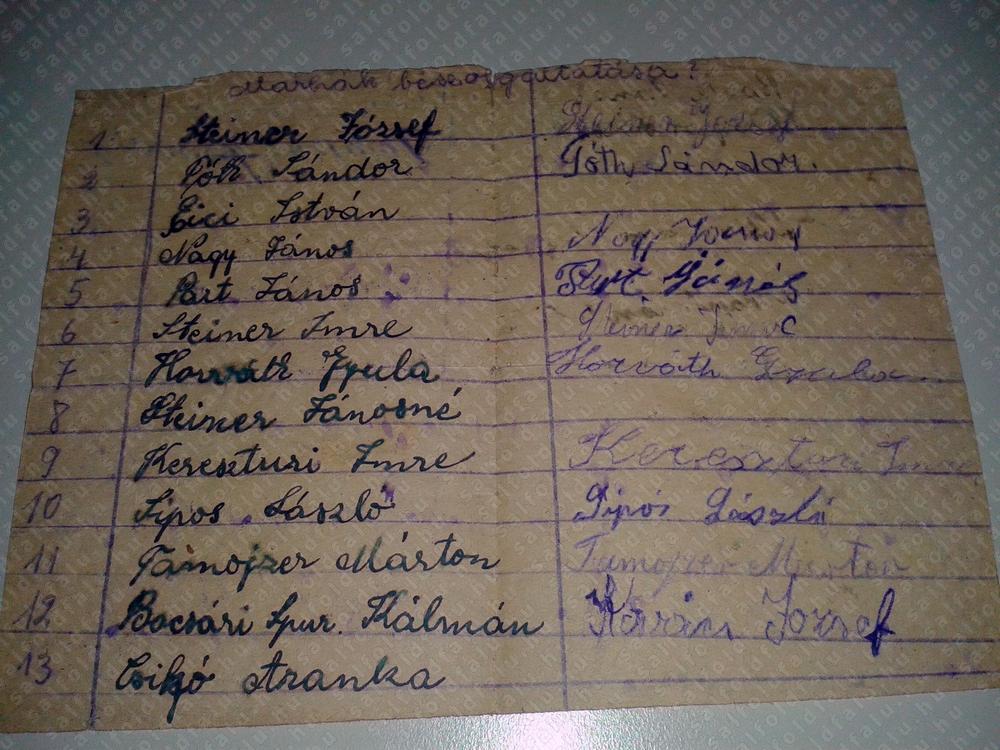 Marhák
1. Steiner József Steiner József
2 Tóth Sándor Tóth Sándor.
3 Cici István
4 Nagy János Nagy János
5 Part János Part János
6 Steiner Imre Steiner Imre
7 Horváth Gyula Horváth Gyula
8 Steiner Jánosné
9 Kereszturi Imre Kereszturi Imre
10 Sipos László Sipos László
11 Tamojzer Márton Tamojzer Márton
12 Bocsári Kálmán József
13 Csikó Aranka